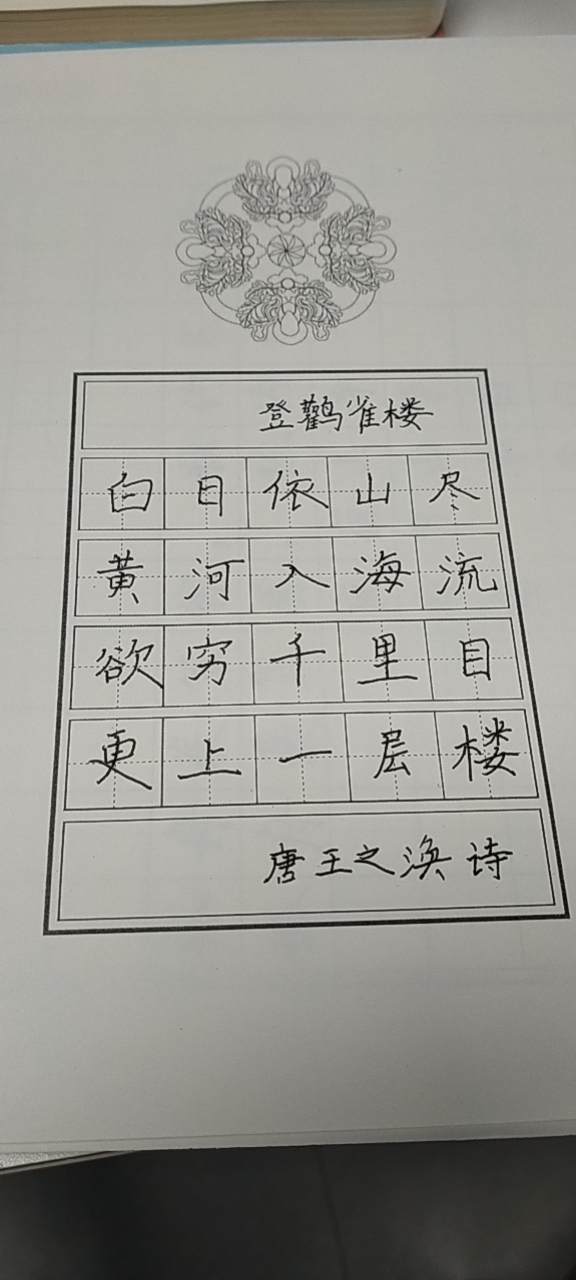 登鹳雀楼
白日依山尽
黄河入海流
欲穷千里目
更上一层楼
唐王之涣诗